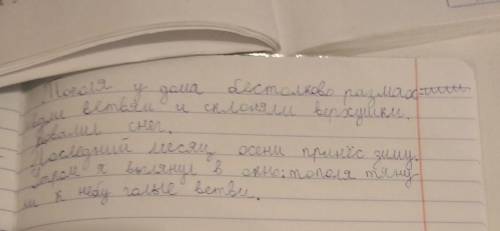 Тополя у дома бестолково размахи-
вали ветвями и склоняли верхушки.
Повалил снег.
Последний месяц осени принёс зиму.
Утром я выглянул в окно: тополя тяну-
ли к небу голые ветви.